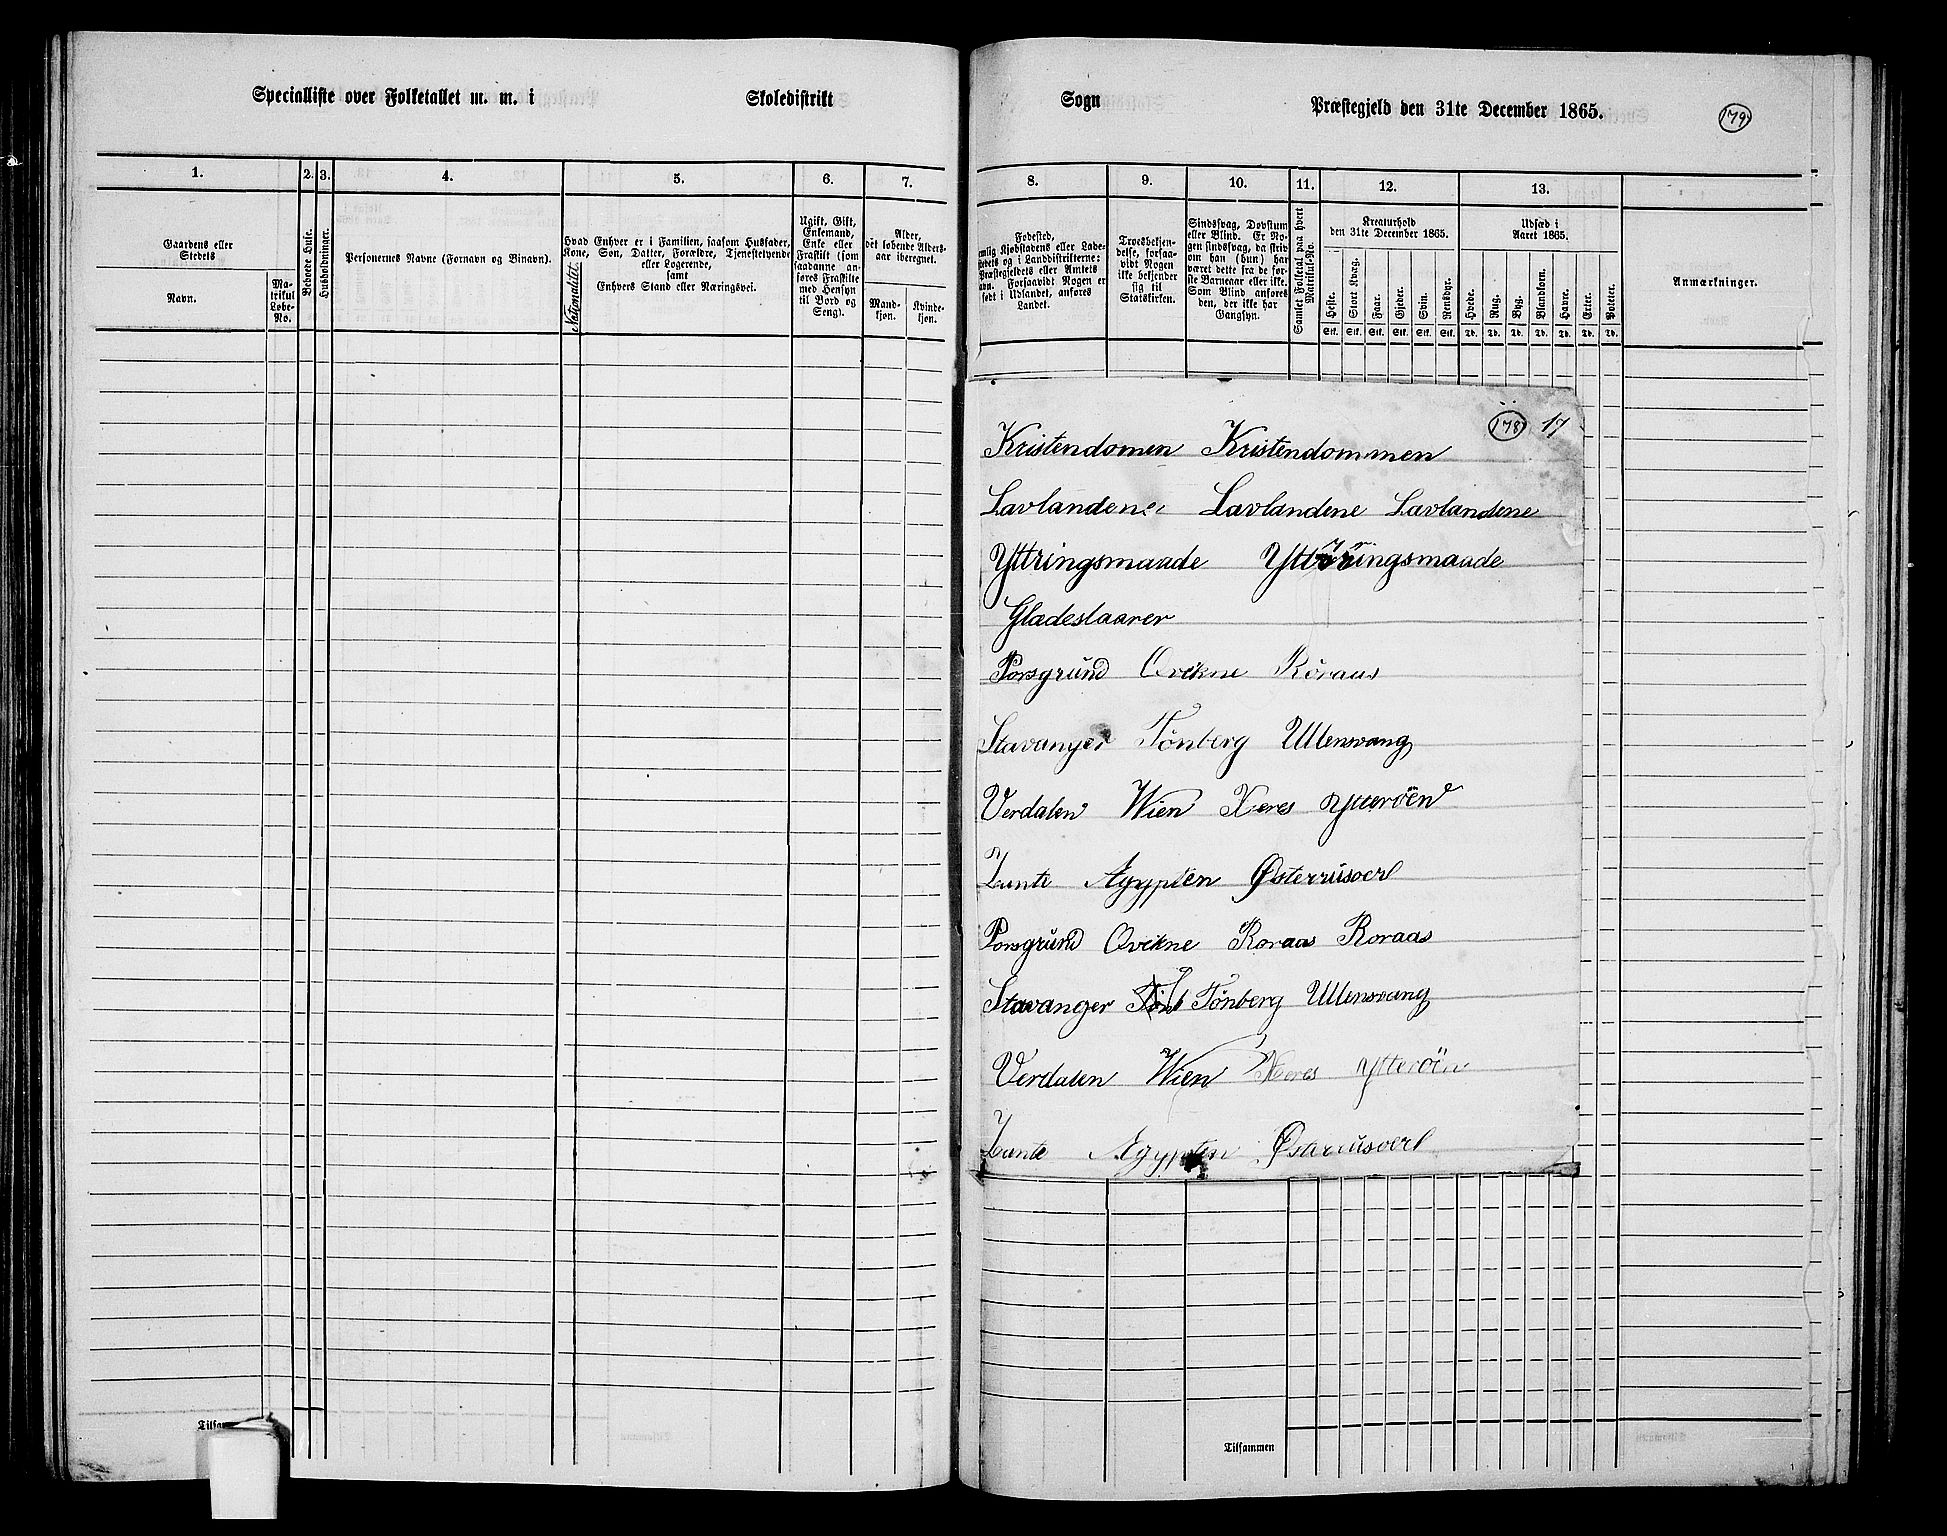 Specialliste over Folketallet m. m. i Skoledistrikt Sogn Præstegjeld den 31te December 1865. 179
1. 2. 3. 4. 5. 6. 7. 8. 9. 10. 11. 12. 13.
Gaardens eller
Stedets
Navn.
Ma-
trikul
Løbe-
No.
Beboede Huse.
Husholdninger.
Personernes Navne (Fornavn og Binavn).
Nationalitet.
Hvad Enhver er i Familien, saasom Husfader,
Kone, Søn, Datter, Forældre, Tjenestetyende
eller Logerende,
samt
Enhvers Stand eller Næringsvei.
Ugift, Gift,
Enkemand,
Enke eller
Fraskilt (som
saadanne an-
føres Fraskilte
med Hensyn
til Bord og
Seng).
Alder,
det løbende Alders-
aar iberegnet.
Mand-
kjøn.
Kvinde-
kjøn.
Fødested,
emlig Kjøbstadens eller Lade-
stedets og i Landdistrikterne:
Præstegjeldets eller Amtets
avn. Forsaavidt Nogen er
født i Udlandet, anføres
Landet.
Troesbekjen-
delse, forsaa-
vidt Nogen
ikke bekjender
sig til
Statskirken.
Sindssvag, Døvstum
eller Blind. Er No-
gen sindssvag, da skriv
om han (hun) har
været dette fra de før-
ste Barneaar eller ikke.
Som Blind anføres
den, der ikke har
Gangsyn.
Samlet Folketal paa hvert
Matrikul-No.
Kreaturhold
den 31te December 1865.
Heste. Stort Kvæg. Faar. Gjeder. Svin. Rensdyr.
Stk. Stk. Stk. Stk. Stk. Stk.
Udsæd i
Aaret 1865.
Hvede. Rug. Byg. Blandkorn. Havre. Erter. Poteter.
Td. Td. Td. Td. Td. Td. Td.
Anmærkninger.
178 17
Kristendomen Kristendommen
Lavlandene Lavlandene Lavlandene
Yttringsmaade Yttringsmaade
Glædestaarer
Porsgrund Qvikne Röraas
Stavanger Tønberg Ullensvang
Verdalen Wien Xeres Ytterøen
Zante Ægypten Østerriisoerl
Porsgrund Qvikne Roraas Roraas
Stavanger Tönb Tönberg Ullensvang
Verdalen Wien Xeres Ytteröen
Zante Ægypten Østerriisoerl
Tilsammen